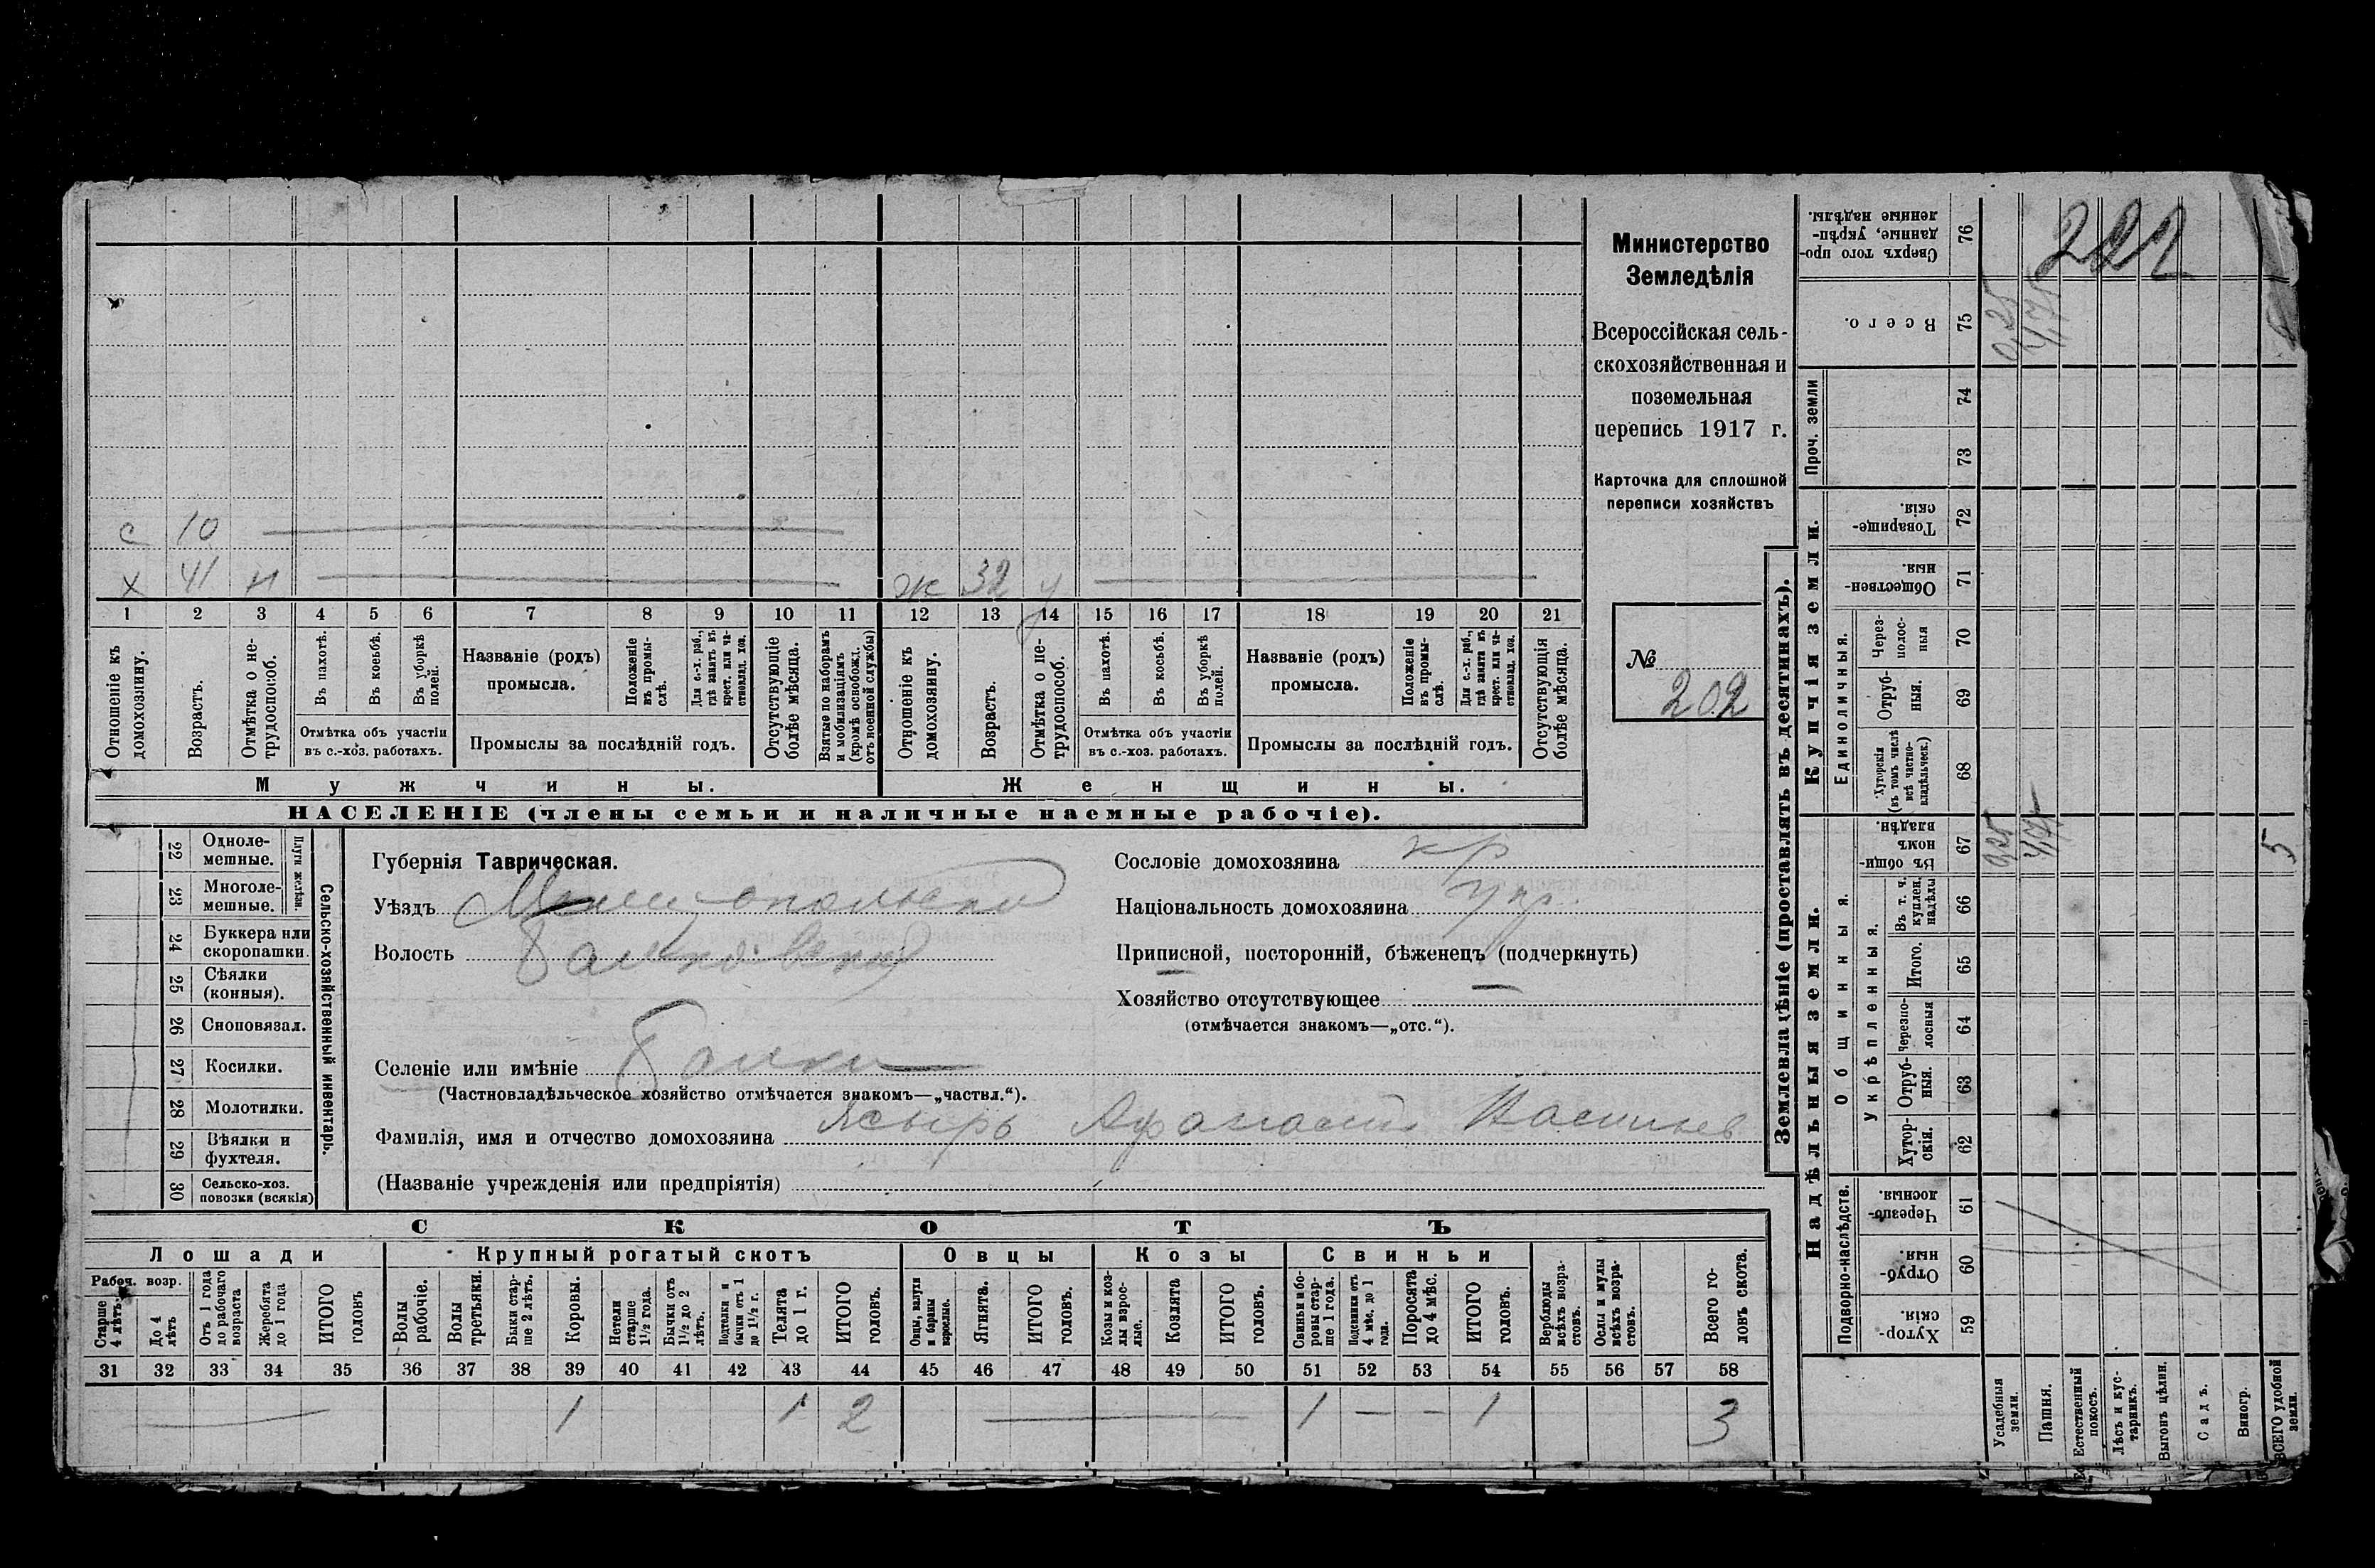 с 10
х 41 н ж 32 у
1 2 3 4 5 6 7 8 9 10 11 12 13 14 15 16 17 18 19 20 21
Отношеніе къ домохозяину.
Возрастъ.
Отмѣтка о нетрудоспособ.
Въ пахотѣ.
Въ косьбѣ.
Въ уборкѣ полей.
Отмѣтка объ участіи
въ с.-хоз. работахъ.
Названіе (родъ)
промысла.
Положеніе въ промыслѣ.
Для с.-х. раб., гдѣ занятъ въ крест. или частновлад. хоз.
Промыслы за послѣдній годъ.
Отсутствующіе болѣе мѣсяца.
Взятые по наборамъ и мобилизаціямъ (кромѣ освобожд. отъ военной службы)
Отношеніе къ домохозяину.
Возрастъ.
Отмѣтка о нетрудоспособ.
Въ пахотѣ.
Въ косьбѣ.
Въ уборкѣ полей.
Отмѣтка объ участіи
въ с.-хоз. работахъ.
Названіе (родъ)
промысла.
Положеніе въ промыслѣ.
Для с.-х. раб., гдѣ занята въ крест. или частновлад. хоз.
Промыслы за послѣдній годъ.
Отсутствующія болѣе мѣсяца.
Мужчины. Женщины.
НАСЕЛЕНІЕ (члены семьи и наличные наемные рабочіе).
Министерство
Земледѣлія
Всероссійская сель-
скохозяйственная и
поземельная
перепись 1917 г.
Карточка для сплошной
переписи хозяйствъ
№
202
22 Одноле-
мешные.
23 Многоле-
мешные.
Плуги желѣзн.
24 Буккера или
скоропашки.
25 Сѣялки
(конныя).
26 Сноповязал.
27 Косилки.
28 Молотилки.
29 Вѣялки и
фухтеля.
30 Сельско-хоз.
повозки (всякія)
Сельско-хозяйственный инвентарь.
Губернія Таврическая.
Уѣздъ Мелитопольскій
Волость Балковской
Селеніе или имѣніе Балки
(Частновладѣльческое хозяйство отмѣчается знакомъ—„частвл.“).
Фамилія, имя и отчество домохозяина Ясырь Афанасій Васильев
(Названіе учрежденія или предпріятія)
Сословіе домохозяина кр
Національность домохозяина укр.
Приписной, посторонній, бѣженецъ (подчеркнуть)
Хозяйство отсутствующее —
(отмѣчается знакомъ—„отс.“).
СКОТЪ
Лошади Крупный рогатый скотъ Овцы Козы Свиньи
Рабоч. возр.
Старше 4 лѣтъ.
До 4 лѣтъ
Отъ 1 года до рабочаго возраста
Жеребята до 1 года
ИТОГО головъ
Волы рабочіе.
Волы третьяки.
Быки старше 2 лѣтъ.
Коровы.
Нетели старше 1½ года.
Бычки отъ 1½ до 2 лѣтъ.
Подтелки и бычки отъ 1 до 1½ г.
Телята до 1 г.
ИТОГО головъ.
Овцы, валухи и бараны взрослые.
Ягнята.
ИТОГО головъ.
Козы и козлы взрослые.
Козлята
ИТОГО головъ.
Свиньи и боровы старше 1 года.
Подсвинки отъ 4 мѣс. до 1 года.
Поросята до 4 мѣс.
ИТОГО головъ.
Верблюды всѣхъ возрастовъ.
Ослы и мулы всѣхъ возрастовъ.
Всего головъ скота.
31 32 33 34 35 36 37 38 39 40 41 42 43 44 45 46 47 48 49 50 51 52 53 54 55 56 57 58
1 1 2 1 — — 1 3
Землевладѣніе (проставлять въ десятинахъ).
Надѣльныя земли. Купчія земли. Проч. земли
Подворно-наслѣдств.
Общинныя.
Укрѣпленныя.
Единоличныя.
Сверхъ того проданные, укрѣпленные надѣлы. 76
Всего. 75
74
73
Товарищескія. 72
Общественныя. 71
Черезполосныя 70
Отрубныя. 69
Хуторскія (въ томъ числѣ всѣ частновладѣльческ.) 68
Въ общинномъ владѣн. 67
Въ т. ч. куплен. надѣлы 66
Итого. 65
Черезполосныя 64
Отрубныя. 63
Хуторскія. 62
Черезполосныя. 61
Отрубныя. 60
Хуторскія 59
Усадебныя земли.
Пашня.
Естественный покосъ.
Лѣсъ и кустарникъ.
Выгонъ цѣлин.
Садъ.
Виногр.
ВСЕГО удобной земли.
222
0,25
4,75
0,25
4,75
5